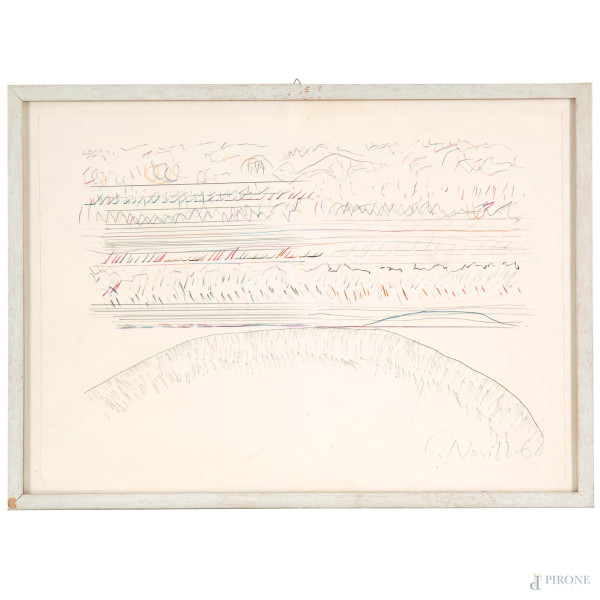 G. Novelli 60
PIRONE